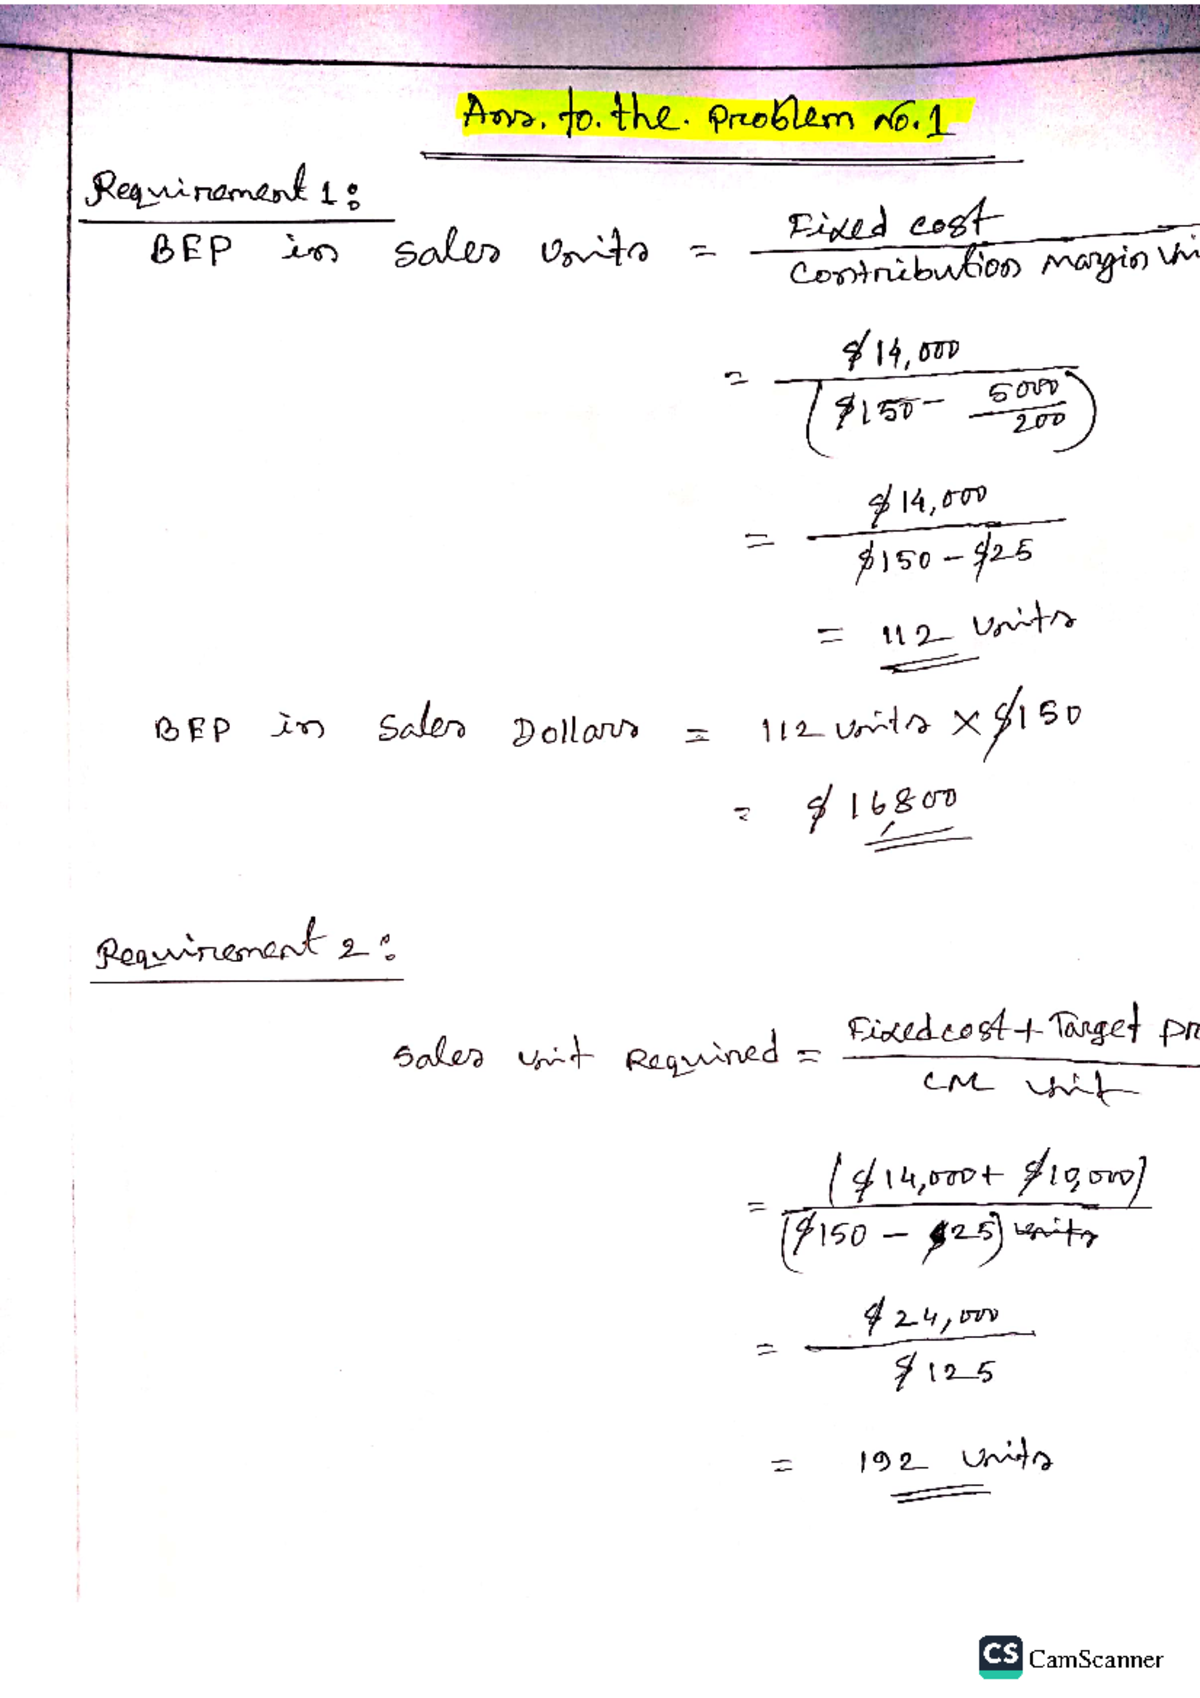 Ans. to. the. Problem No. 1
Requirement 1:
BEP in Sales Units = Fixed cost
Contribution Margin Uni
= $14,000
($150 - 5000
200)
= $14,000
$150 - $25
= 112 Units
BEP in Sales Dollars = 112 units × $150
= $16,800
Requirement 2:
Sales unit Required = Fixed cost + Target pr
CM unit
= ($14,000 + $10,000)
($150 - $25) units
= $24,000
$125
= 192 Units
CS CamScanner